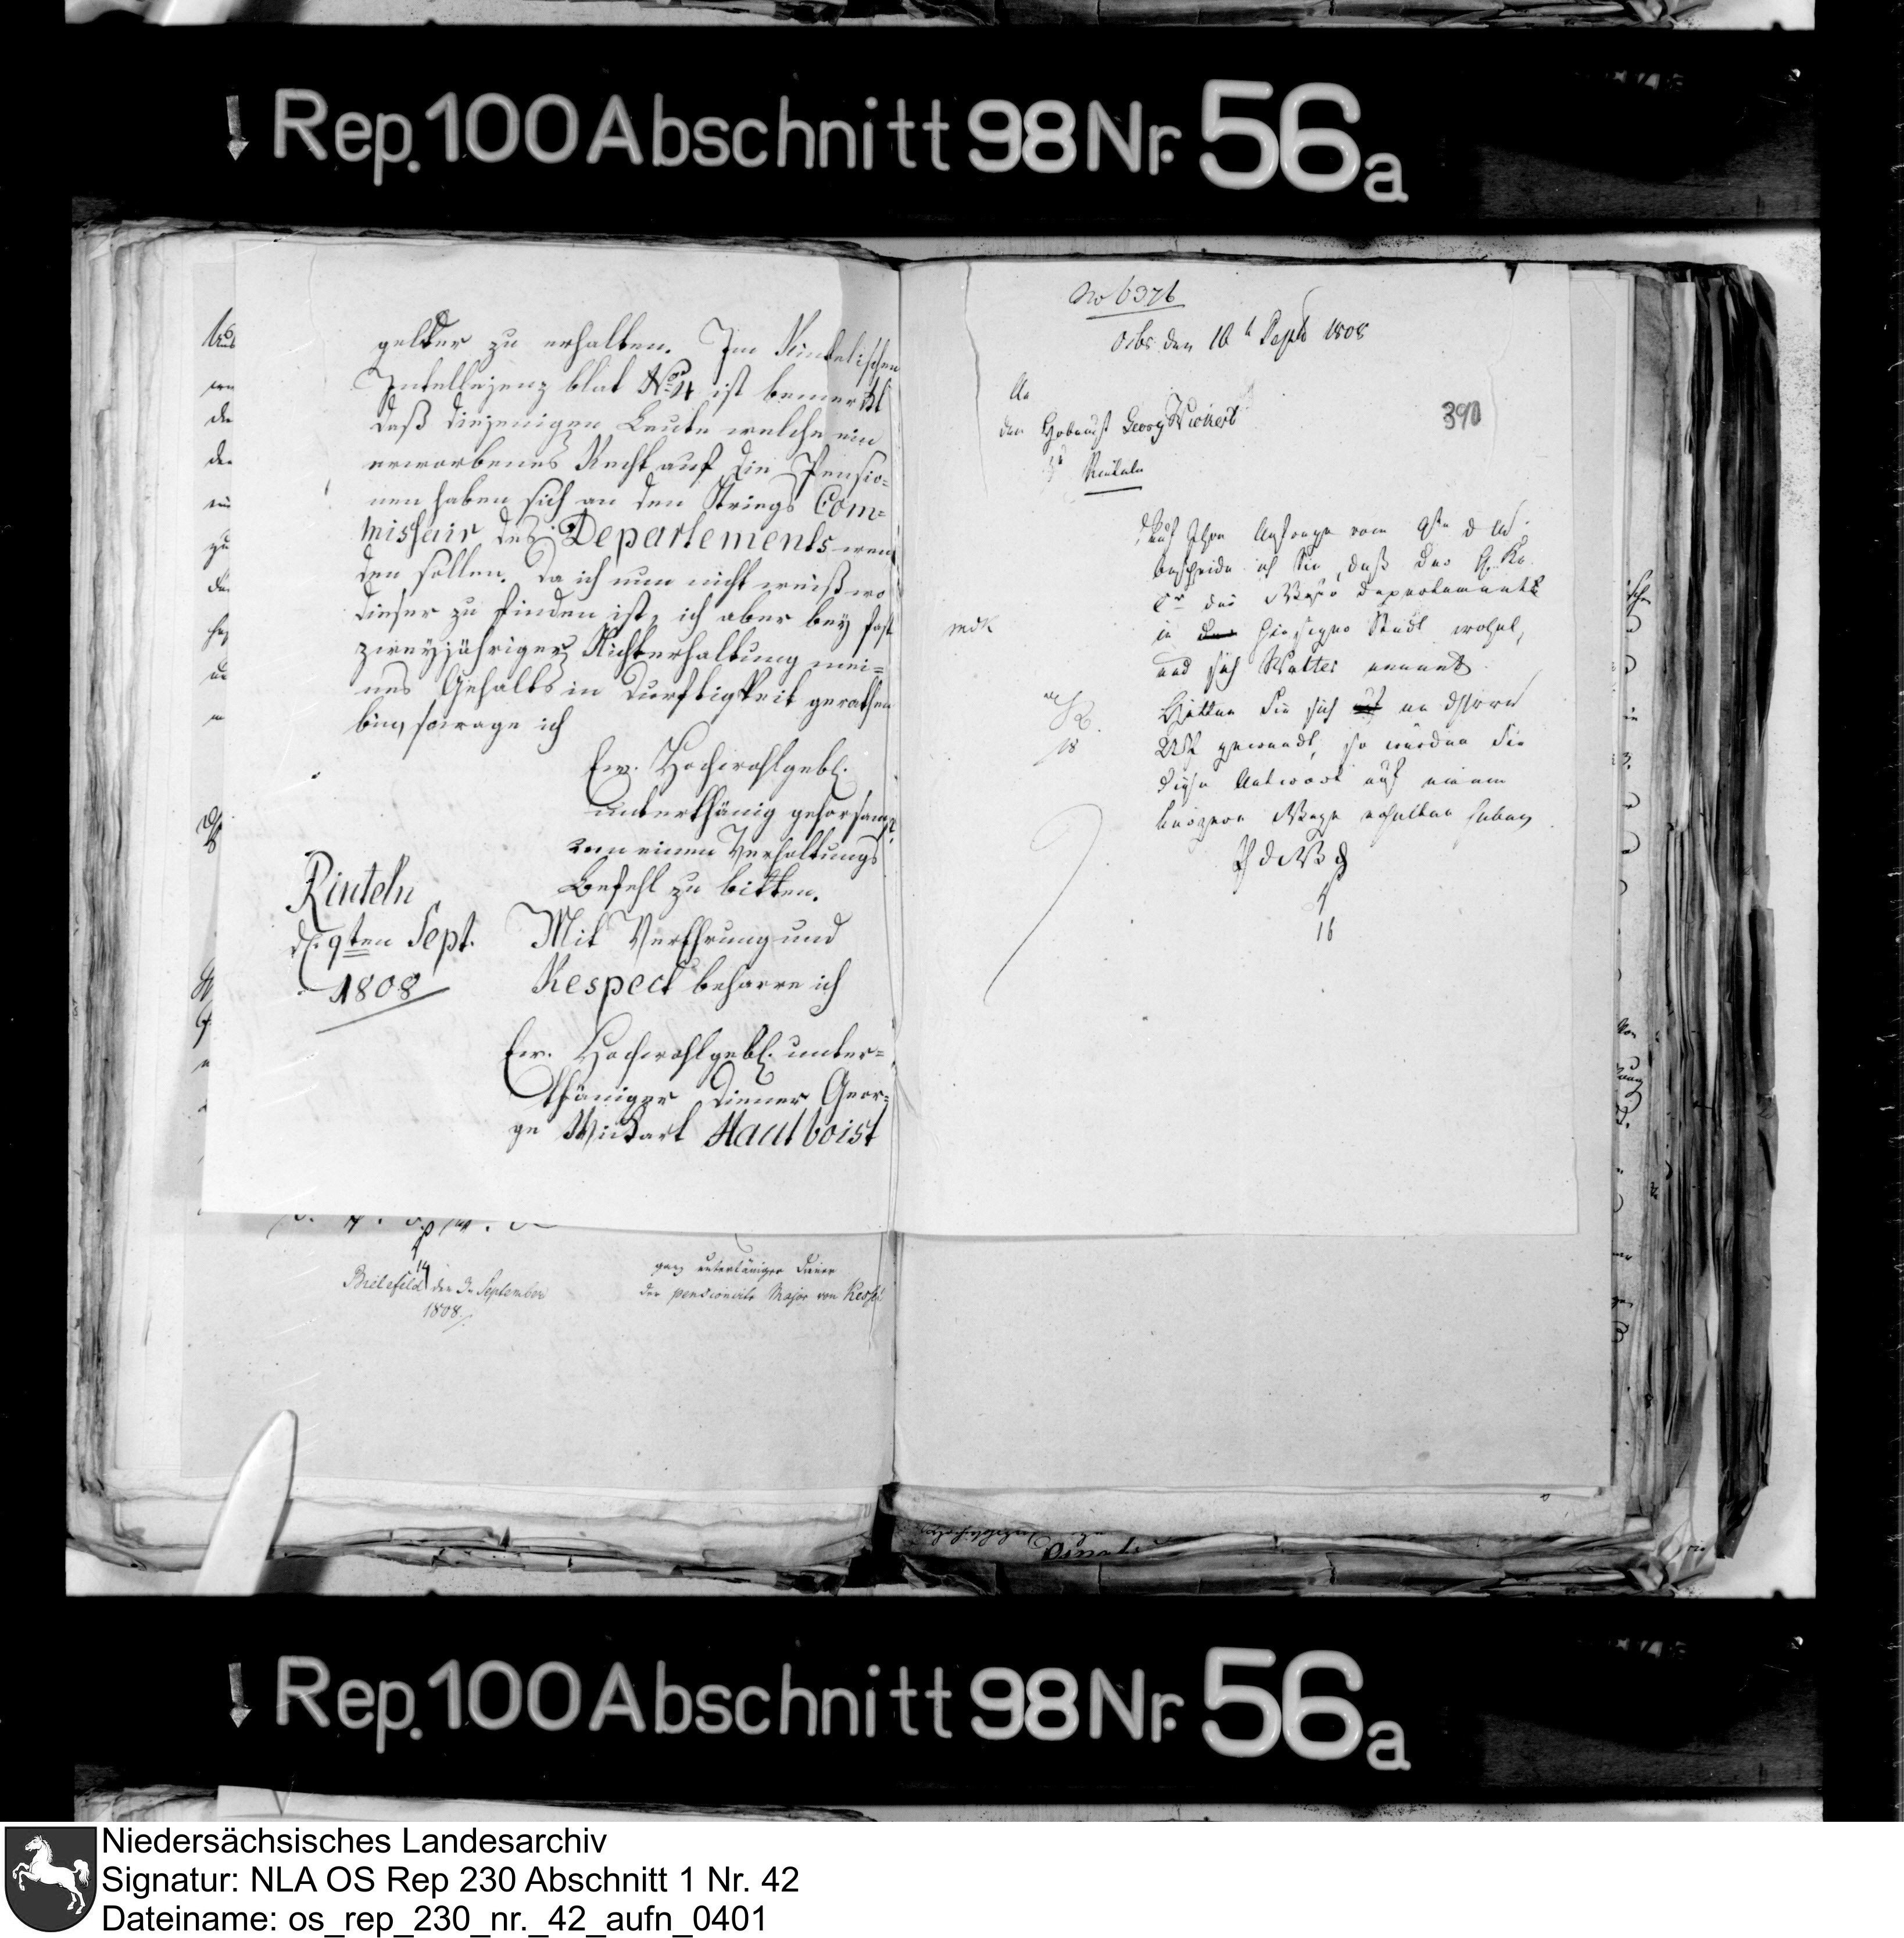 Rep. 100 Abschnitt 98 Nr. 56a
gelder zu erhalten. Im Rintelischen
Intelligenz blat No. 4 ist bemerckt
daß diejenigen Leute welche ein
erworbenes Recht auf die Pensio-
nen haben sich an den Kriegs Com-
missair des Departements wen
den sollen. Da ich nun nicht weiß wo
dieser zu finden ist, ich aber bey fast
zweyjähriger Nichterhaltung mei-
nes Gehalts in Durftigkeit gerathen
bin, so wage ich
Ew. Hochwohlgebl.
unterthänig gehorsamst
um einen Verhaltungs
Befehl zu bitten.
Rinteln
d. 9ten Sept.
1808
Mit Verehrung und
Respect beharre ich
Ew. Hochwohlgebl. unter-
thäniger Diener Geor-
ge Wickart Hautboist
14
Bielefeld den September
1808
ganz unterthäniger Diener
der pensionirte Major von
No 6376
Osbr. den 16t Septb 1808
An
den Hoboist Georg Wickert
zu Rinteln
390
Auf Ihre Anfrage vom 9ten d M.
bescheide ich Sie, daß der
des Weser Departements
in hiesiger Stadt wohnt,
und sich nennt.
Hätten Sie sich an
gewandt, so würden Sie
diese Antwort auf einem
kürzern Wege erhalten haben
D P d W D
16
Rep. 100 Abschnitt 98 Nr. 56a
Niedersächsisches Landesarchiv
Signatur: NLA OS Rep 230 Abschnitt 1 Nr. 42
Dateiname: os_rep_230_nr._42_aufn_0401